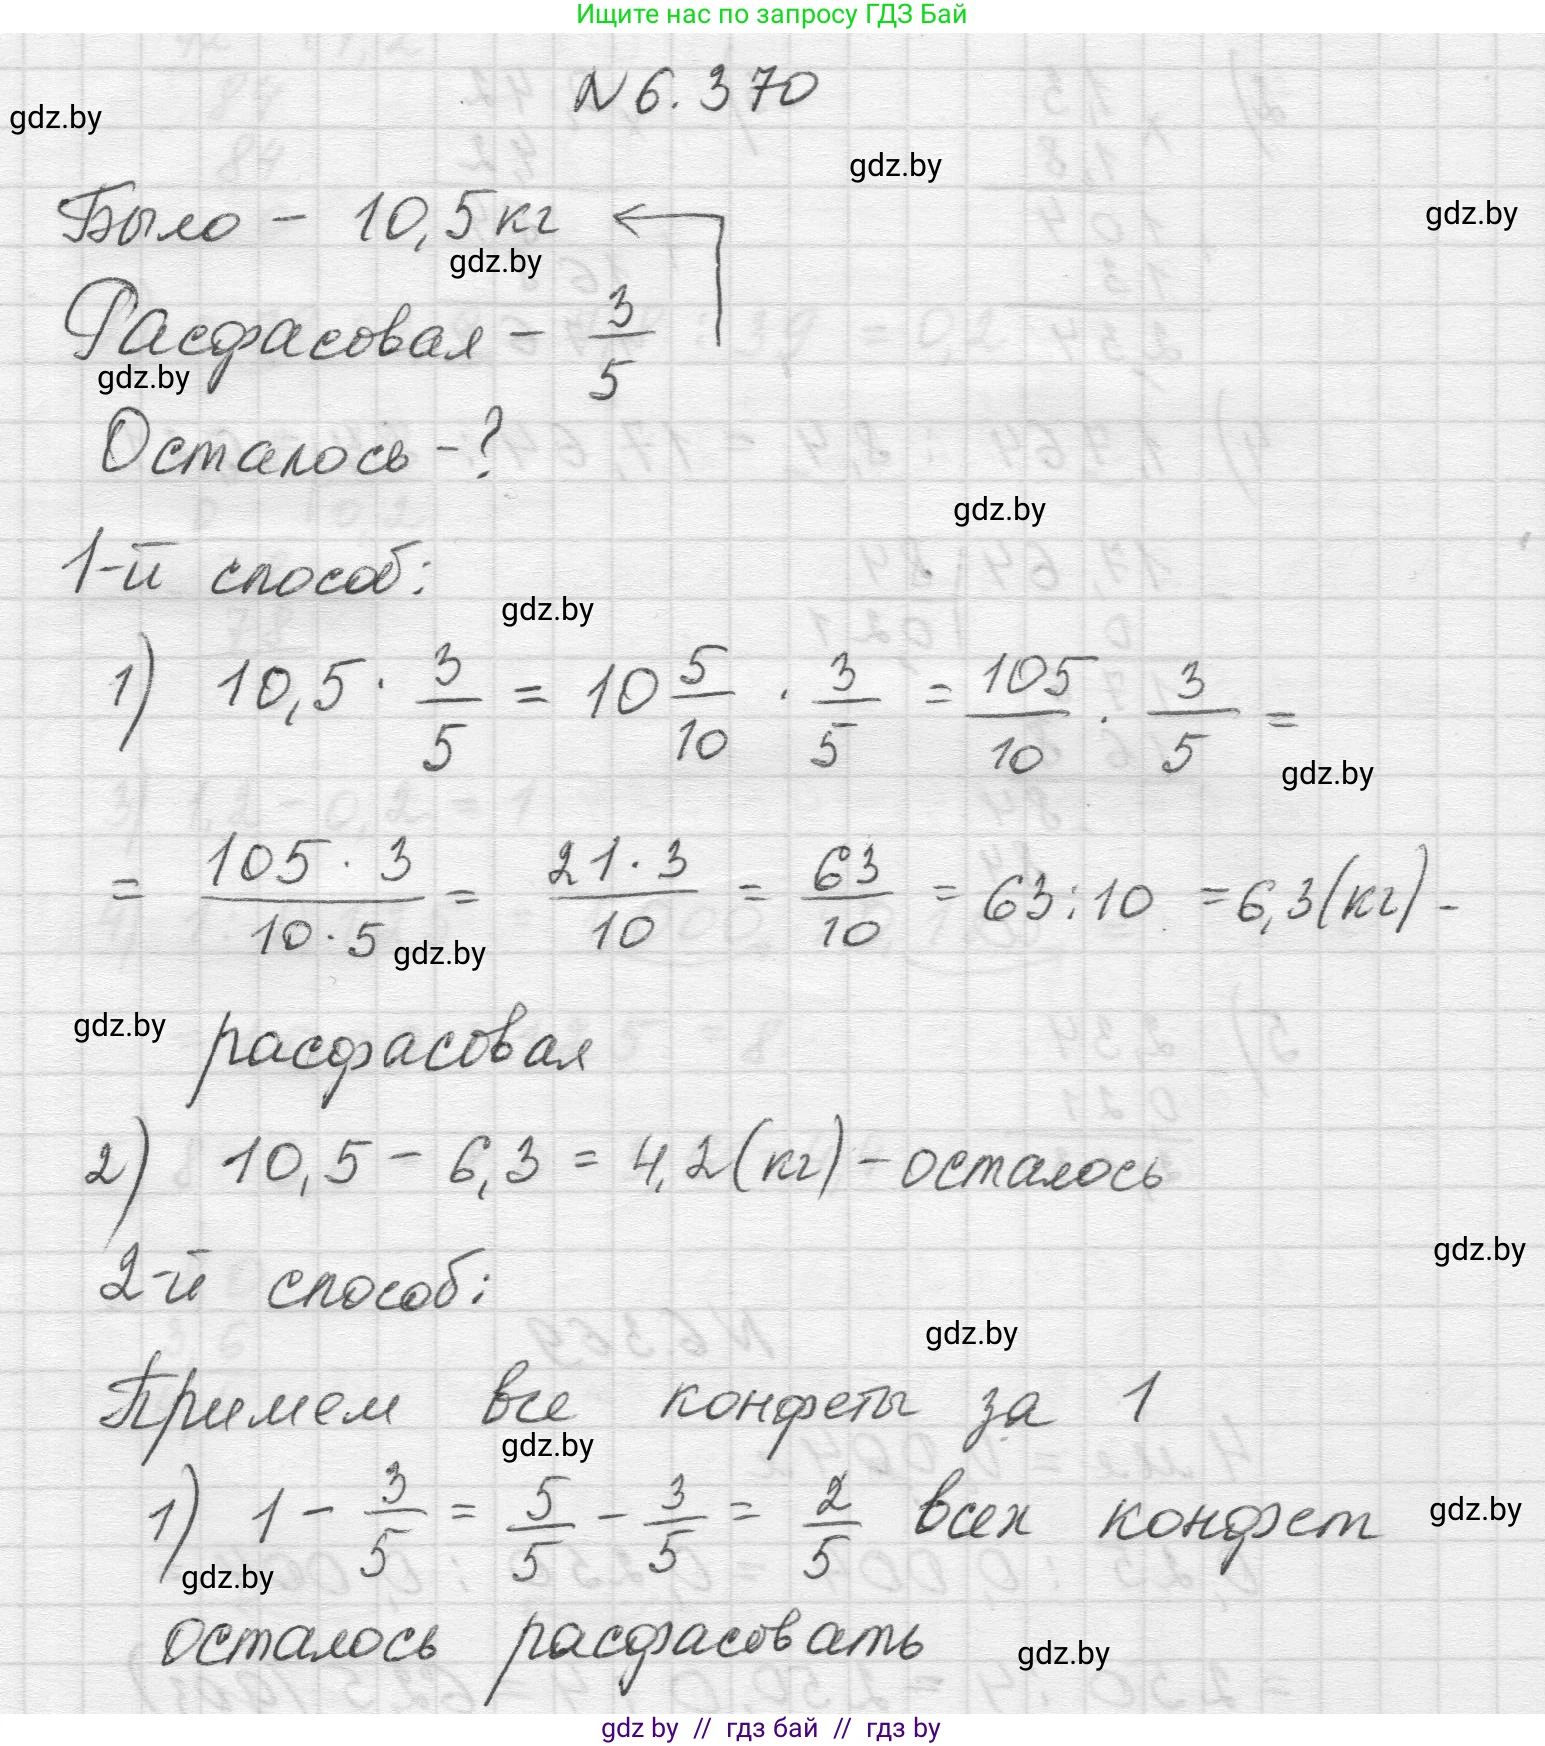 Ищите нас по запросу ГДЗ Бай
N 6.370
gdz.by
gdz.by
Было - 10,5 кг
gdz.by
gdz.by
Фасфасовал - 3/5
gdz.by
Осталось - ?
gdz.by
1-й способ:
gdz.by
1) 10,5 · 3/5 = 10 5/10 · 3/5 = 105/10 · 3/5 =
gdz.by
= 105 · 3/10 · 5 = 21 · 3/10 = 63/10 = 63 : 10 = 6,3 (кг) -
gdz.by
gdz.by
расфасовал
2) 10,5 - 6,3 = 4,2 (кг) - осталось
gdz.by
2-й способ:
gdz.by
Примем все конфеты за 1
gdz.by
1) 1 - 3/5 = 5/5 - 3/5 = 2/5 всех конфет
gdz.by
gdz.by
осталось расфасовать
gdz.by
gdz by // гдз бай // гдз by